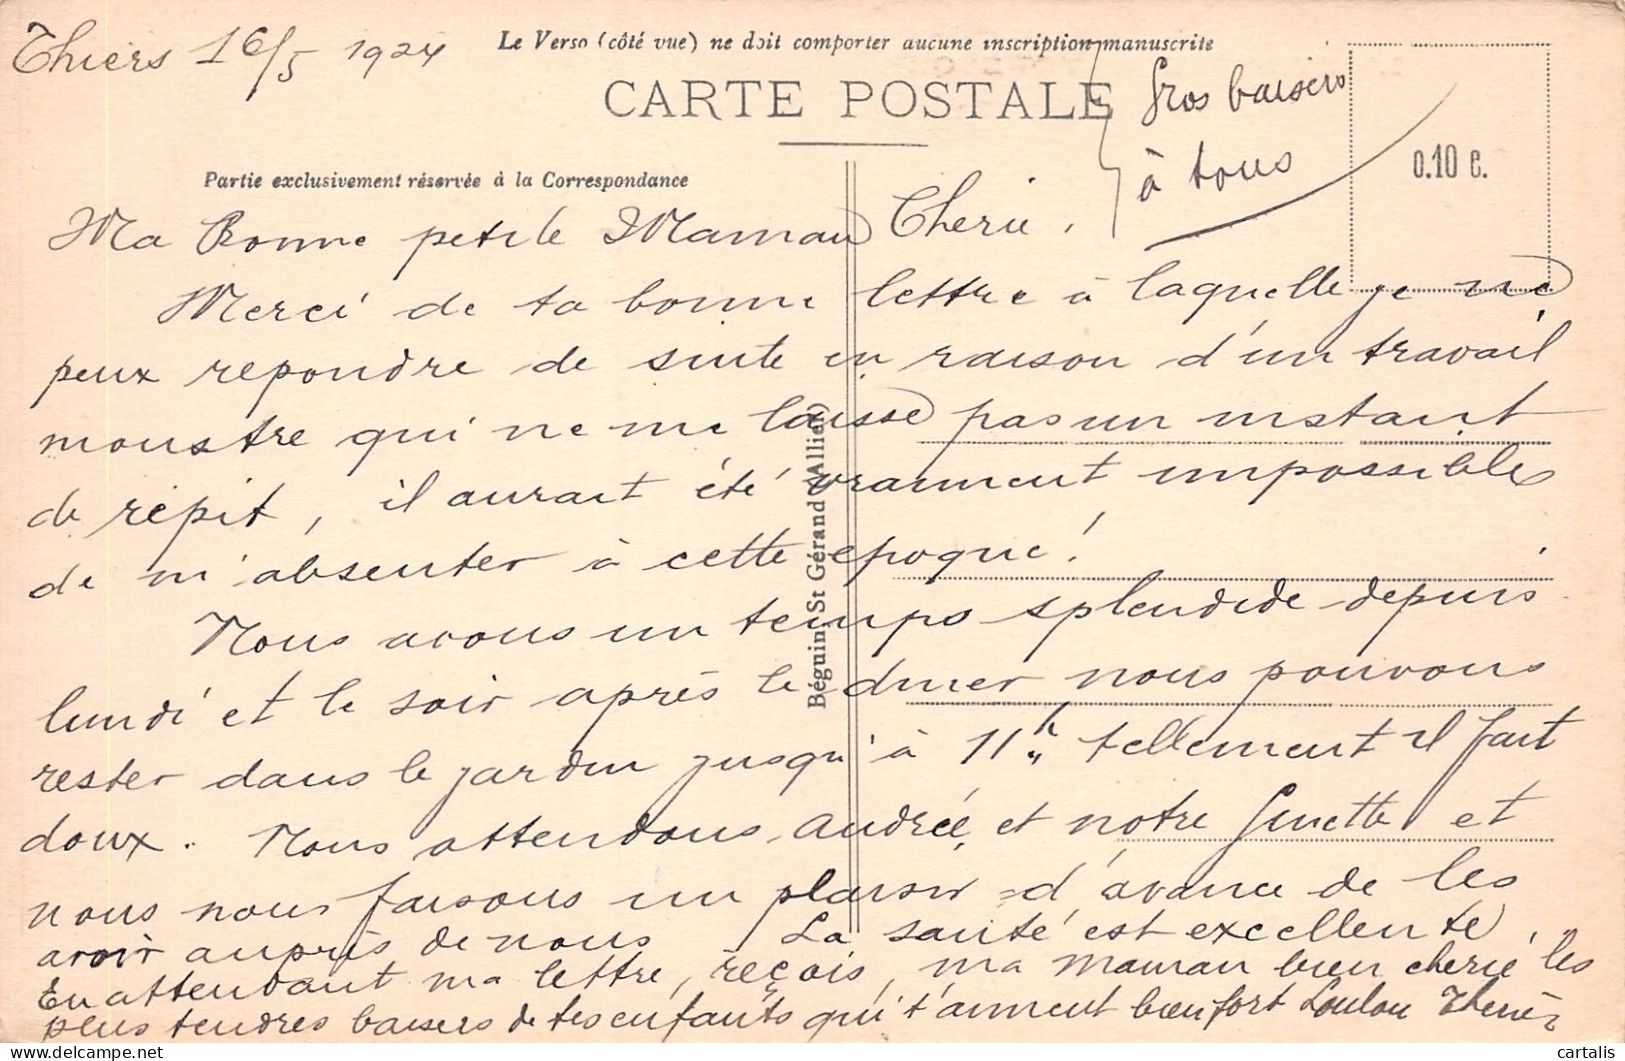 Thiers 16/5 1924
Le Verso (côté vue) ne doit comporter aucune inscription manuscrite
CARTE POSTALE
Gros baisers
à tous
0.10 c.
Partie exclusivement réservée à la Correspondance
Ma Bonne petite Maman Cherie.
Merci de ta bonne lettre à laquelle je ne
peux repondre de suite en raison d'un travail
monstre qui ne me laisse pas un instant
de répit, il aurait été vraiment impossible
de m'absenter à cette epoque!
Nous avons un temps splendide depuis
lundi et le soir après le diner nous pouvons
rester dans le jardin jusqu'à 11h tellement il fait
doux. Nous attendons Andrée et notre Ginette et
nous nous faisons un plaisir d'avance de les
avoir auprès de nous La santé est excellente.
En attendant ma lettre, reçois, ma maman bien cherie les
plus tendres baisers de tes enfants qui t'aiment bien fort Loulou
Béguin, St Gérand (Allier)
cartalis